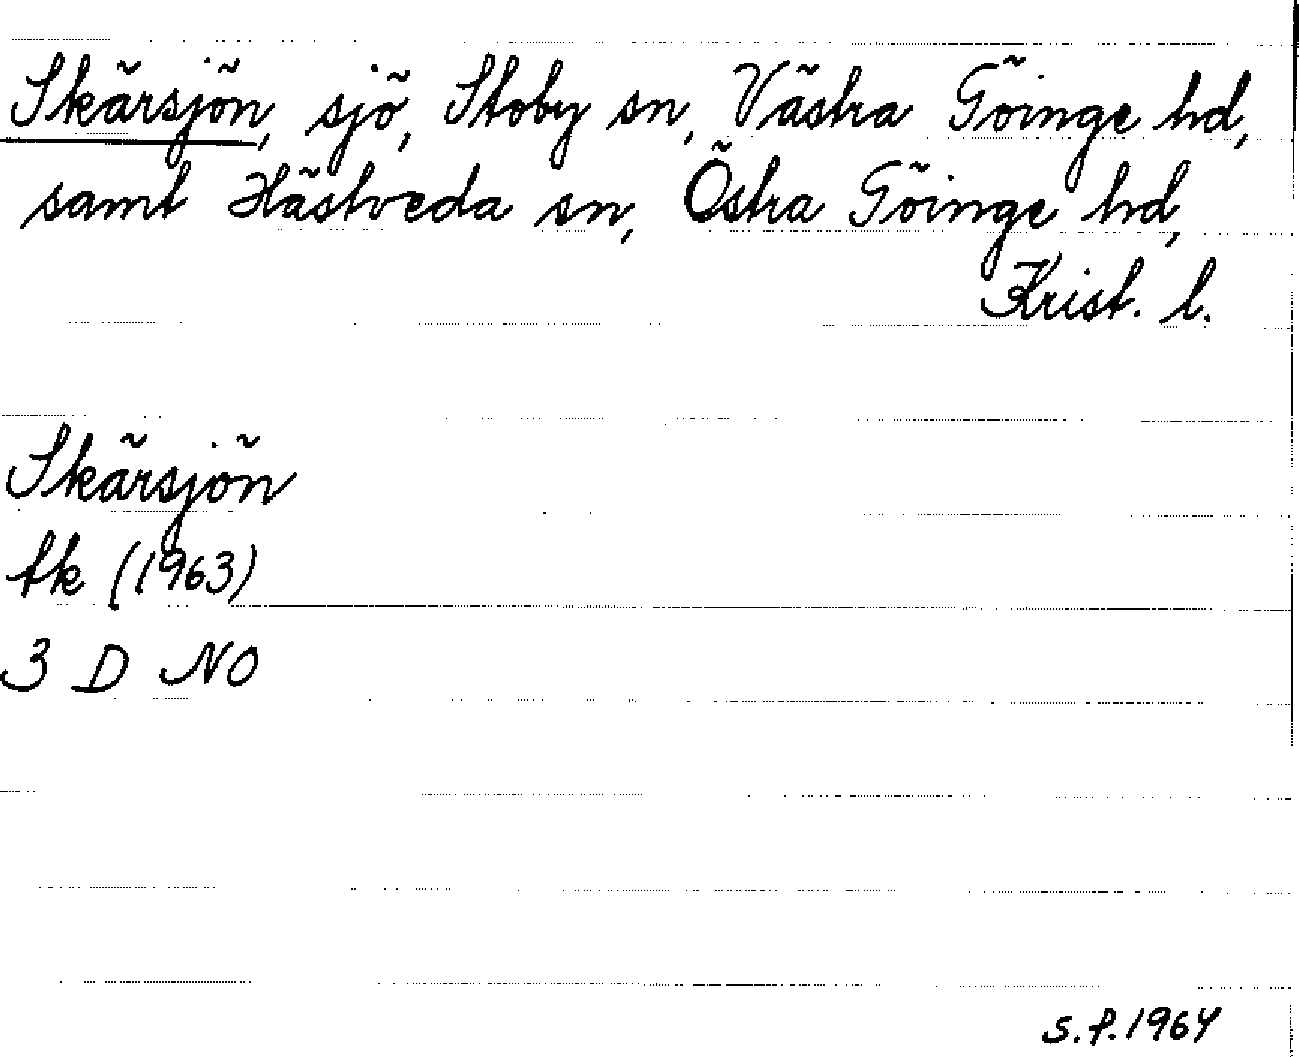 Skärsjön, sjö, Stoby sn, Västra Göinge hd,
samt Hästveda sn, Östra Göinge hd,
Krist. l.
Skärsjön
tk (1963)
3 D NO
S.P. 1964